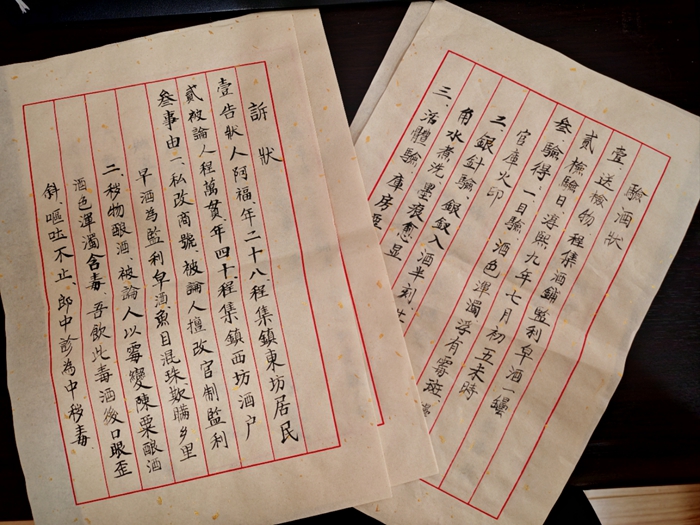 訴狀
壹告狀人阿福、年二十八、程集鎮東坊居民
貳被論人程萬貫、年四十、程集鎮西坊酒户
叄事由一、私改商號、被論人擅改官制監利
早酒為監利皁酒、魚目混珠欺瞞乡里
二、秽物酿酒、被論人以霉變陳粟酿酒
酒色渾濁含毒、吾飲此毒酒後口眼歪
斜、嘔吐不止、郎中診為中秽毒
驗酒狀
壹、送檢物程集酒鋪監利皁酒一罈
貳檢驗日、淳熙九年七月初五未時
叄、驗得、一目驗、酒色渾濁浮有霉斑、
官庫火印
二、銀針驗、銀釵入酒半刻、
角水煮洗、墨痕愈显
三、活體驗、庫房